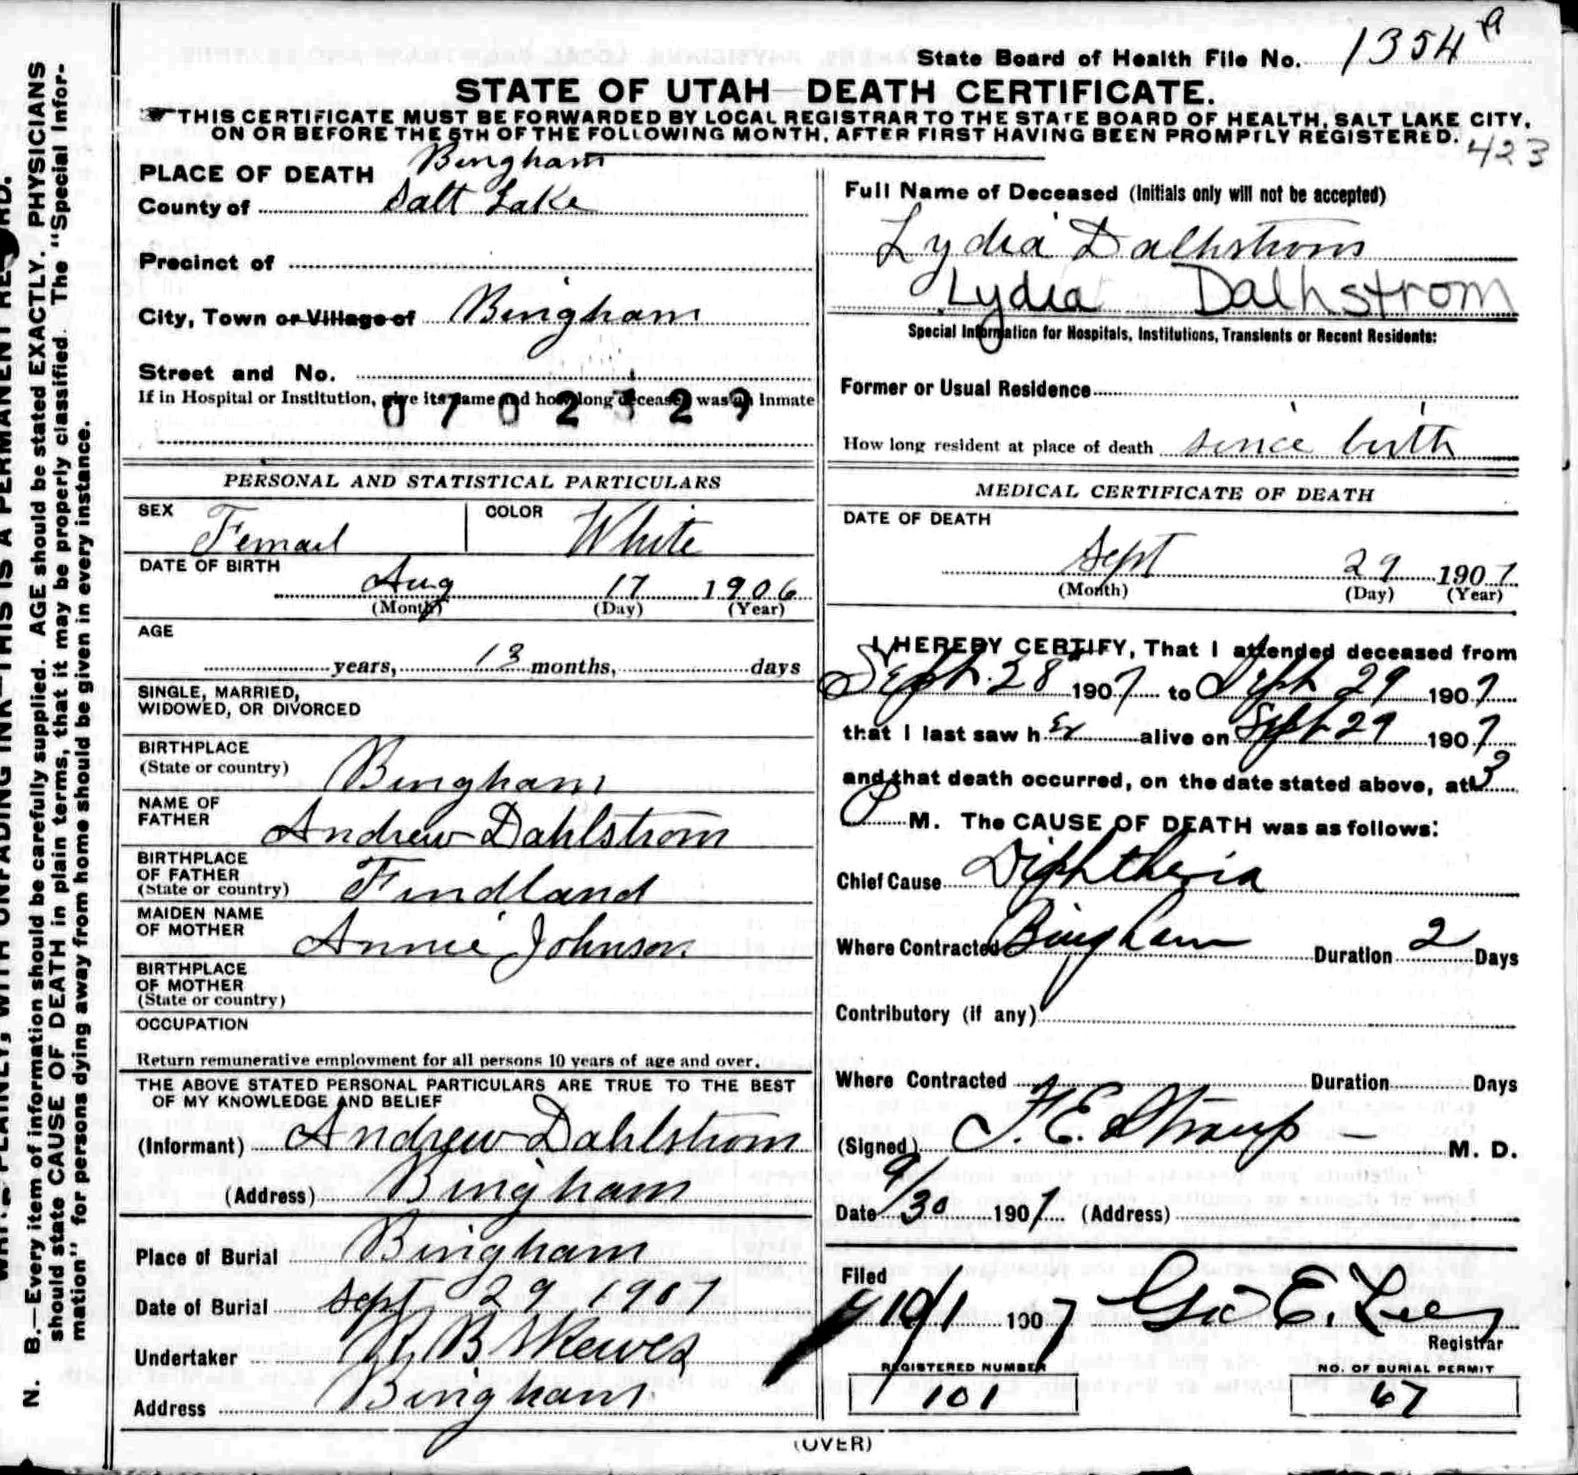 State Board of Health File No. 1354 a
STATE OF UTAH—DEATH CERTIFICATE.
THIS CERTIFICATE MUST BE FORWARDED BY LOCAL REGISTRAR TO THE STATE BOARD OF HEALTH, SALT LAKE CITY,
ON OR BEFORE THE 5TH OF THE FOLLOWING MONTH, AFTER FIRST HAVING BEEN PROMPTLY REGISTERED.
423
PLACE OF DEATH Bingham
County of Salt Lake
Precinct of
City, Town or Village of Bingham
Street and No.
If in Hospital or Institution, give its name and how long deceased was an Inmate
0702329
PERSONAL AND STATISTICAL PARTICULARS
SEX Femail COLOR White
DATE OF BIRTH
Aug 17 1906
(Month) (Day) (Year)
AGE
years, 13 months, days
SINGLE, MARRIED,
WIDOWED, OR DIVORCED
BIRTHPLACE
(State or country) Bingham
NAME OF
FATHER Andrew Dahlstrom
BIRTHPLACE
OF FATHER
(State or country) Findland
MAIDEN NAME
OF MOTHER Annie Johnson
BIRTHPLACE
OF MOTHER
(State or country)
OCCUPATION
Return remunerative employment for all persons 10 years of age and over.
THE ABOVE STATED PERSONAL PARTICULARS ARE TRUE TO THE BEST
OF MY KNOWLEDGE AND BELIEF
(Informant) Andrew Dahlstrom
(Address) Bingham
Place of Burial Bingham
Date of Burial Sept 29 1907
Undertaker B Skewes
Address Bingham
Full Name of Deceased (Initials only will not be accepted)
Lydia Dalhstrom
Lydia Dalhstrom
Special Information for Hospitals, Institutions, Transients or Recent Residents:
Former or Usual Residence
How long resident at place of death since birth
MEDICAL CERTIFICATE OF DEATH
DATE OF DEATH
Sept 29 1907
(Month) (Day) (Year)
I HEREBY CERTIFY, That I attended deceased from
Sept. 28 1907 to Sept 29 1907
that I last saw her alive on Sept 29 1907
and that death occurred, on the date stated above, at 3
P M. The CAUSE OF DEATH was as follows:
Chief Cause Diphtheria
Where Contracted Bingham Duration 2 Days
Contributory (if any)
Where Contracted Duration Days
(Signed) F. E. Straup M. D.
Date 9/30 1907 (Address)
Filed
10/1 1907 Geo E. Lee
Registrar
REGISTERED NUMBER
101
NO. OF BURIAL PERMIT
67
(OVER)
N. B.—Every item of information should be carefully supplied. AGE should be stated EXACTLY. PHYSICIANS
should state CAUSE OF DEATH in plain terms, that it may be properly classified. The "Special Infor-
mation" for persons dying away from home should be given in every instance.
PLAINLY, WITH UNFADING INK—THIS IS A PERMANENT